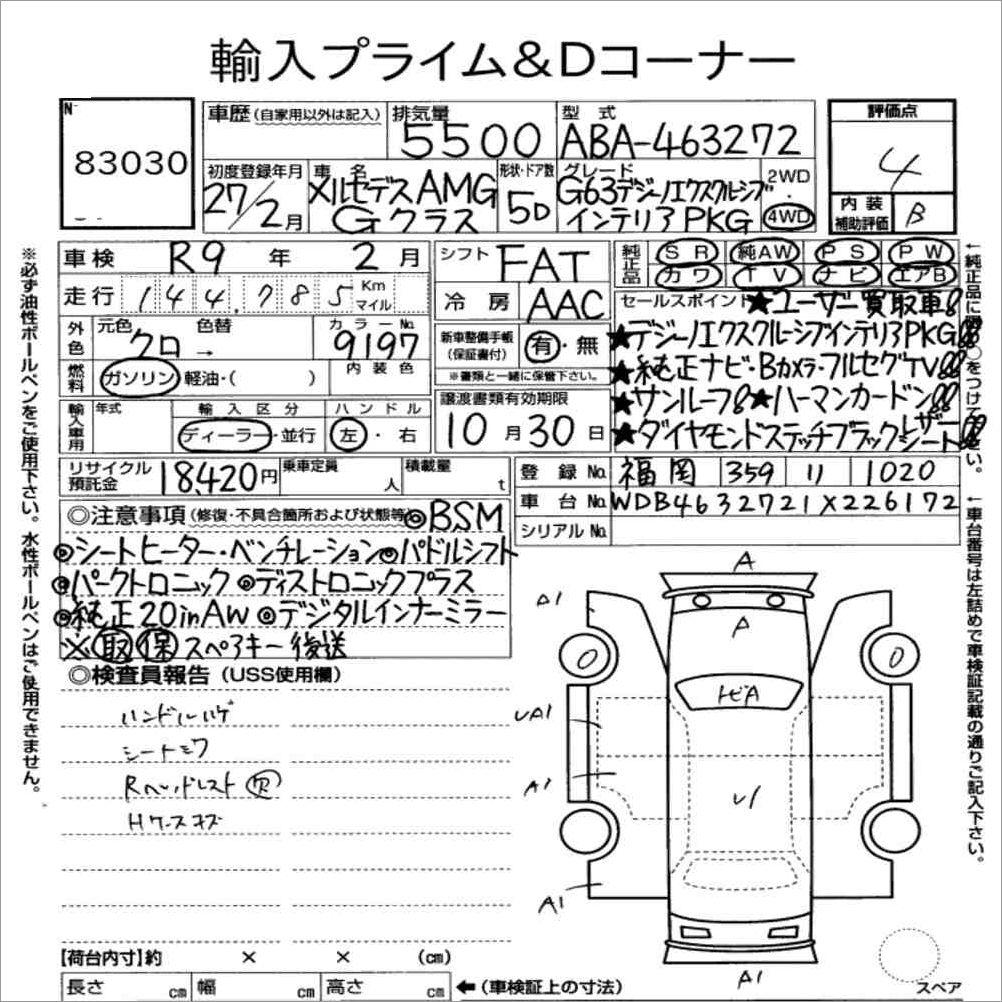 輸入プライム&Dコーナー
No
83030
車歴(自家用以外は記入)
排気量
5500
型式
ABA-463272
評価点
4
内装補助評価
B
初度登録年月
27/2月
車名
メルセデスAMG
Gクラス
形状・ドア数
5D
グレード
G63デジーノエクスクルーシブ
インテリアPKG
2WD
4WD
車検 R9年 2月
走行 144,785 Km マイル
シフト FAT
冷房 AAC
純正品
SR 純AW PS PW
カワ TV ナビ エアB
外色
元色 クロ
色替 →
カラーNo. 9197
内装色
燃料 ガソリン 軽油・( )
新車整備手帳(保証書付) 有・無
※書類と一緒に保管下さい。
セールスポイント ★ユーザー買取車!!
★デジーノエクスクルーシブインテリアPKG!!
★純正ナビ・Bカメラ・フルセグTV!!
★サンルーフ!! ★ハーマンカードン!!
★ダイヤモンドステッチブラックレザーシート!!
輸入車用
年式
輸入区分 ディーラー・並行
ハンドル 左・右
譲渡書類有効期限
10月30日
リサイクル預託金 18,420円
乗車定員 人
積載量 t
登録No. 福岡 359 11 1020
車台No. WDB4632721X226172
シリアルNo.
◎注意事項(修復・不具合箇所および状態等) ◎BSM
◎シートヒーター・ベンチレーション◎パドルシフト
◎パークトロニック◎ディストロニックプラス
◎純正20inAW◎デジタルインナーミラー
※取保 スペアキー後送
◎検査員報告(USS使用欄)
ハンドルハゲ
シートシワ
Rヘッドレスト欠
Hケースキズ
A
A1
A
トビA
UA1
A1
A1
A1
【荷台内寸】約 × × (cm)
長さ cm 幅 cm 高さ cm
←(車検証上の寸法)
スペア
※必ず油性ボールペンをご使用下さい。水性ボールペンはご使用できません。
←車台番号は左詰めで車検証記載の通りご記入下さい。